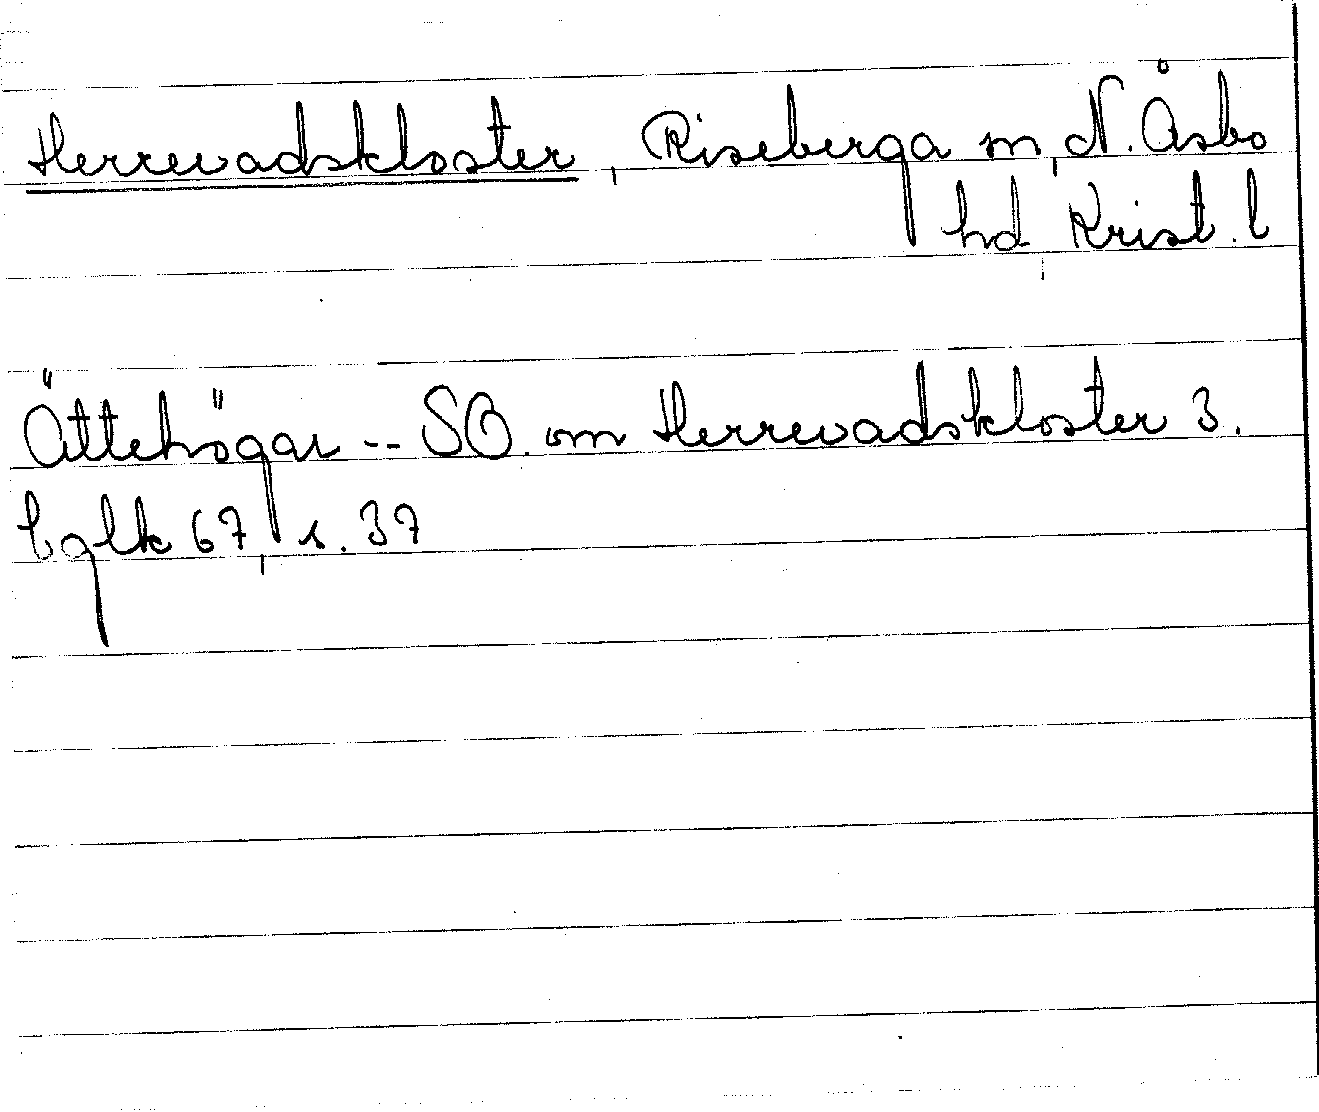 Herrevadskloster, Riseberga sn, N. Åsbo
hd, Krist. l
Ättehögar -- SO. om Herrevadskloster 3.
bglk 67, s. 37